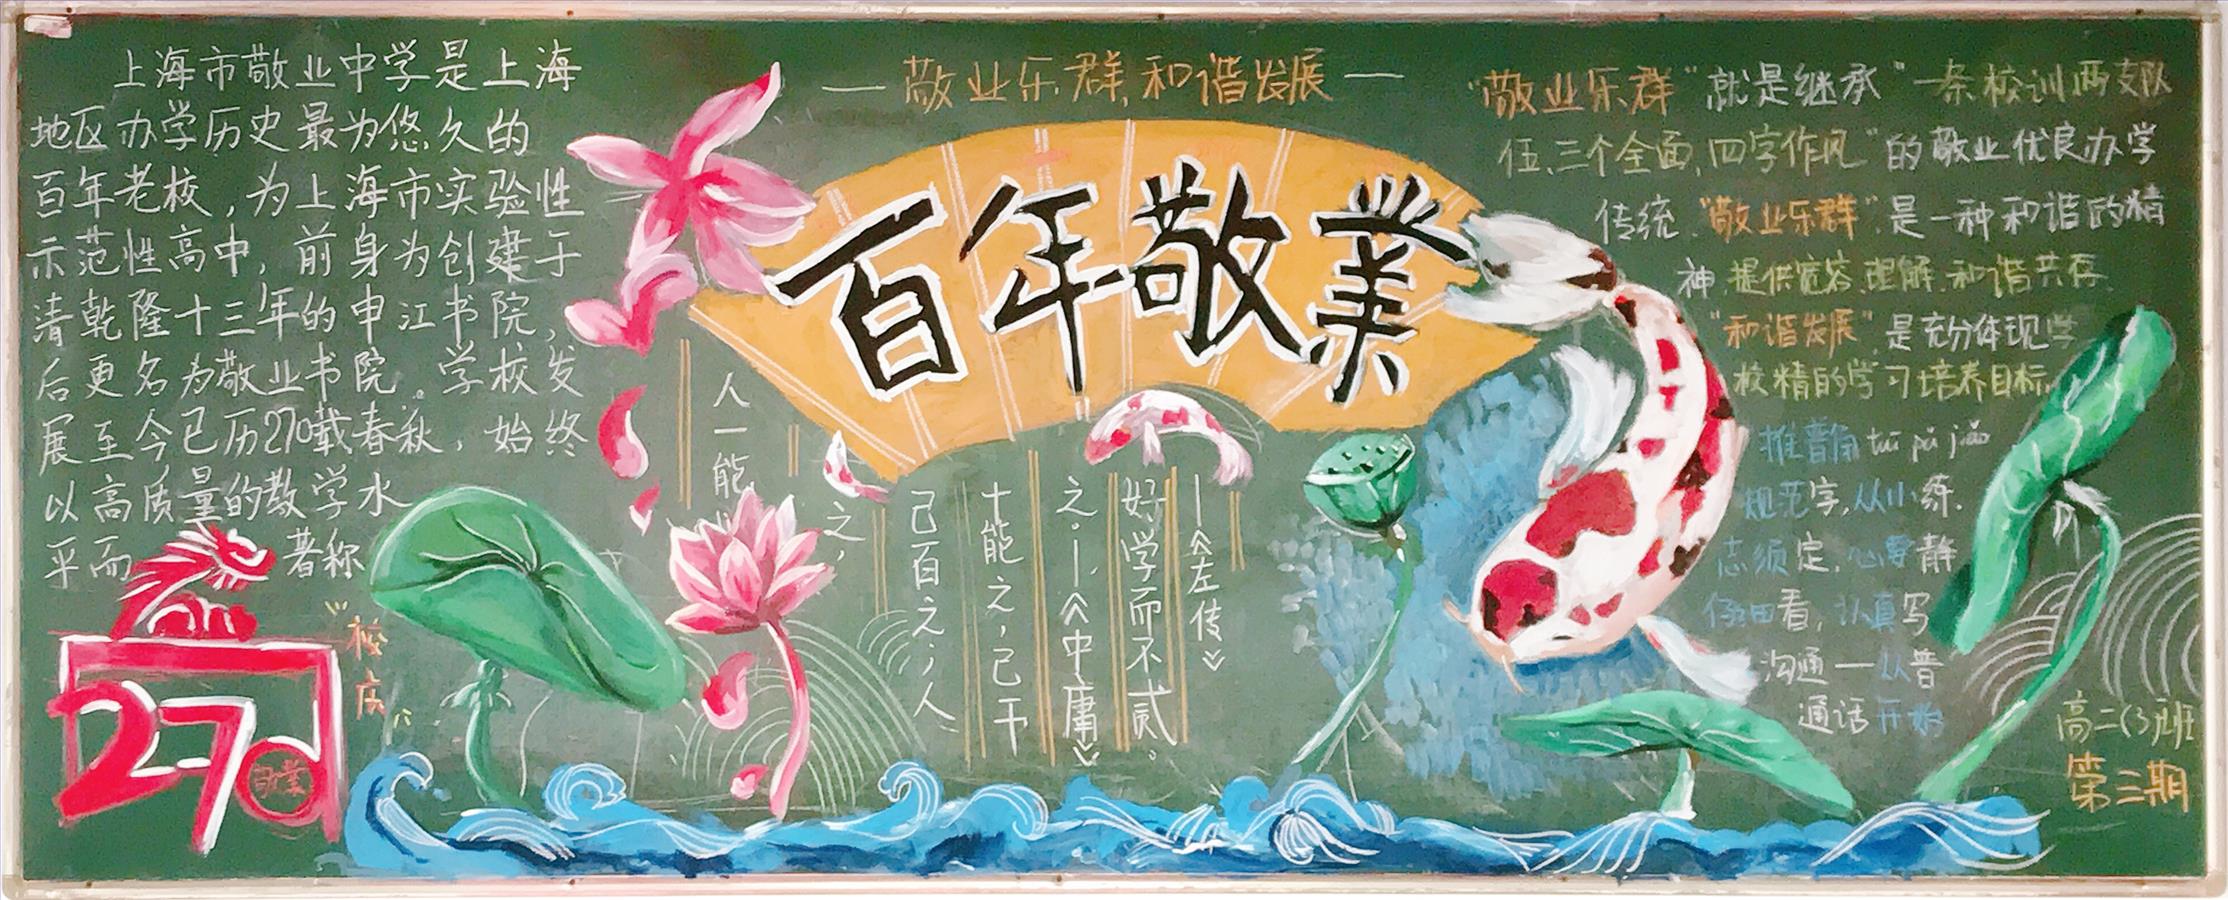 上海市敬业中学是上海
地区办学历史最为悠久的
百年老校，为上海市实验性
示范性高中，前身为创建于
清乾隆十三年的申江书院，
后更名为敬业书院。学校发
展至今已历270载春秋，始终
以高质量的教学水
平而著称
270
"校庆"
—敬业乐群，和谐发展—
百年敬業
人一能之，
己百之；人
十能之，己千
之。—《中庸》
好学而不贰。
—《左传》
"敬业乐群"就是继承"一条校训两支队
伍、三个全面、四字作风"的敬业优良办学
传统。"敬业乐群"是一种和谐的精
神，提供宽容、理解、和谐共存。
"和谐发展"是充分体现学
校精的学习培养目标。
推普角 tuī pǔ jiǎo
规范字，从小练。
志须定，心要静
仔细看，认真写
沟通—从普
通话开始
高二（3）班
第二期